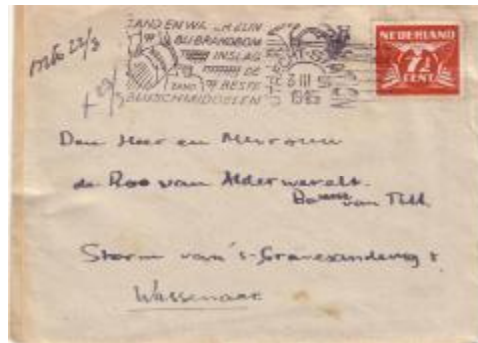 ZAND EN WATER ZIJN
BIJ BRANDBOM
INSLAG
DE
ZAND BESTE
BLUSCHMIDDELEN
UTRECHT
III
NEDERLAND
7½
CENT
Den Heer en Mevrouw
de Roo van Alderwerelt.
van Till
Storm van 's-Gravesandeweg
Wassenaar